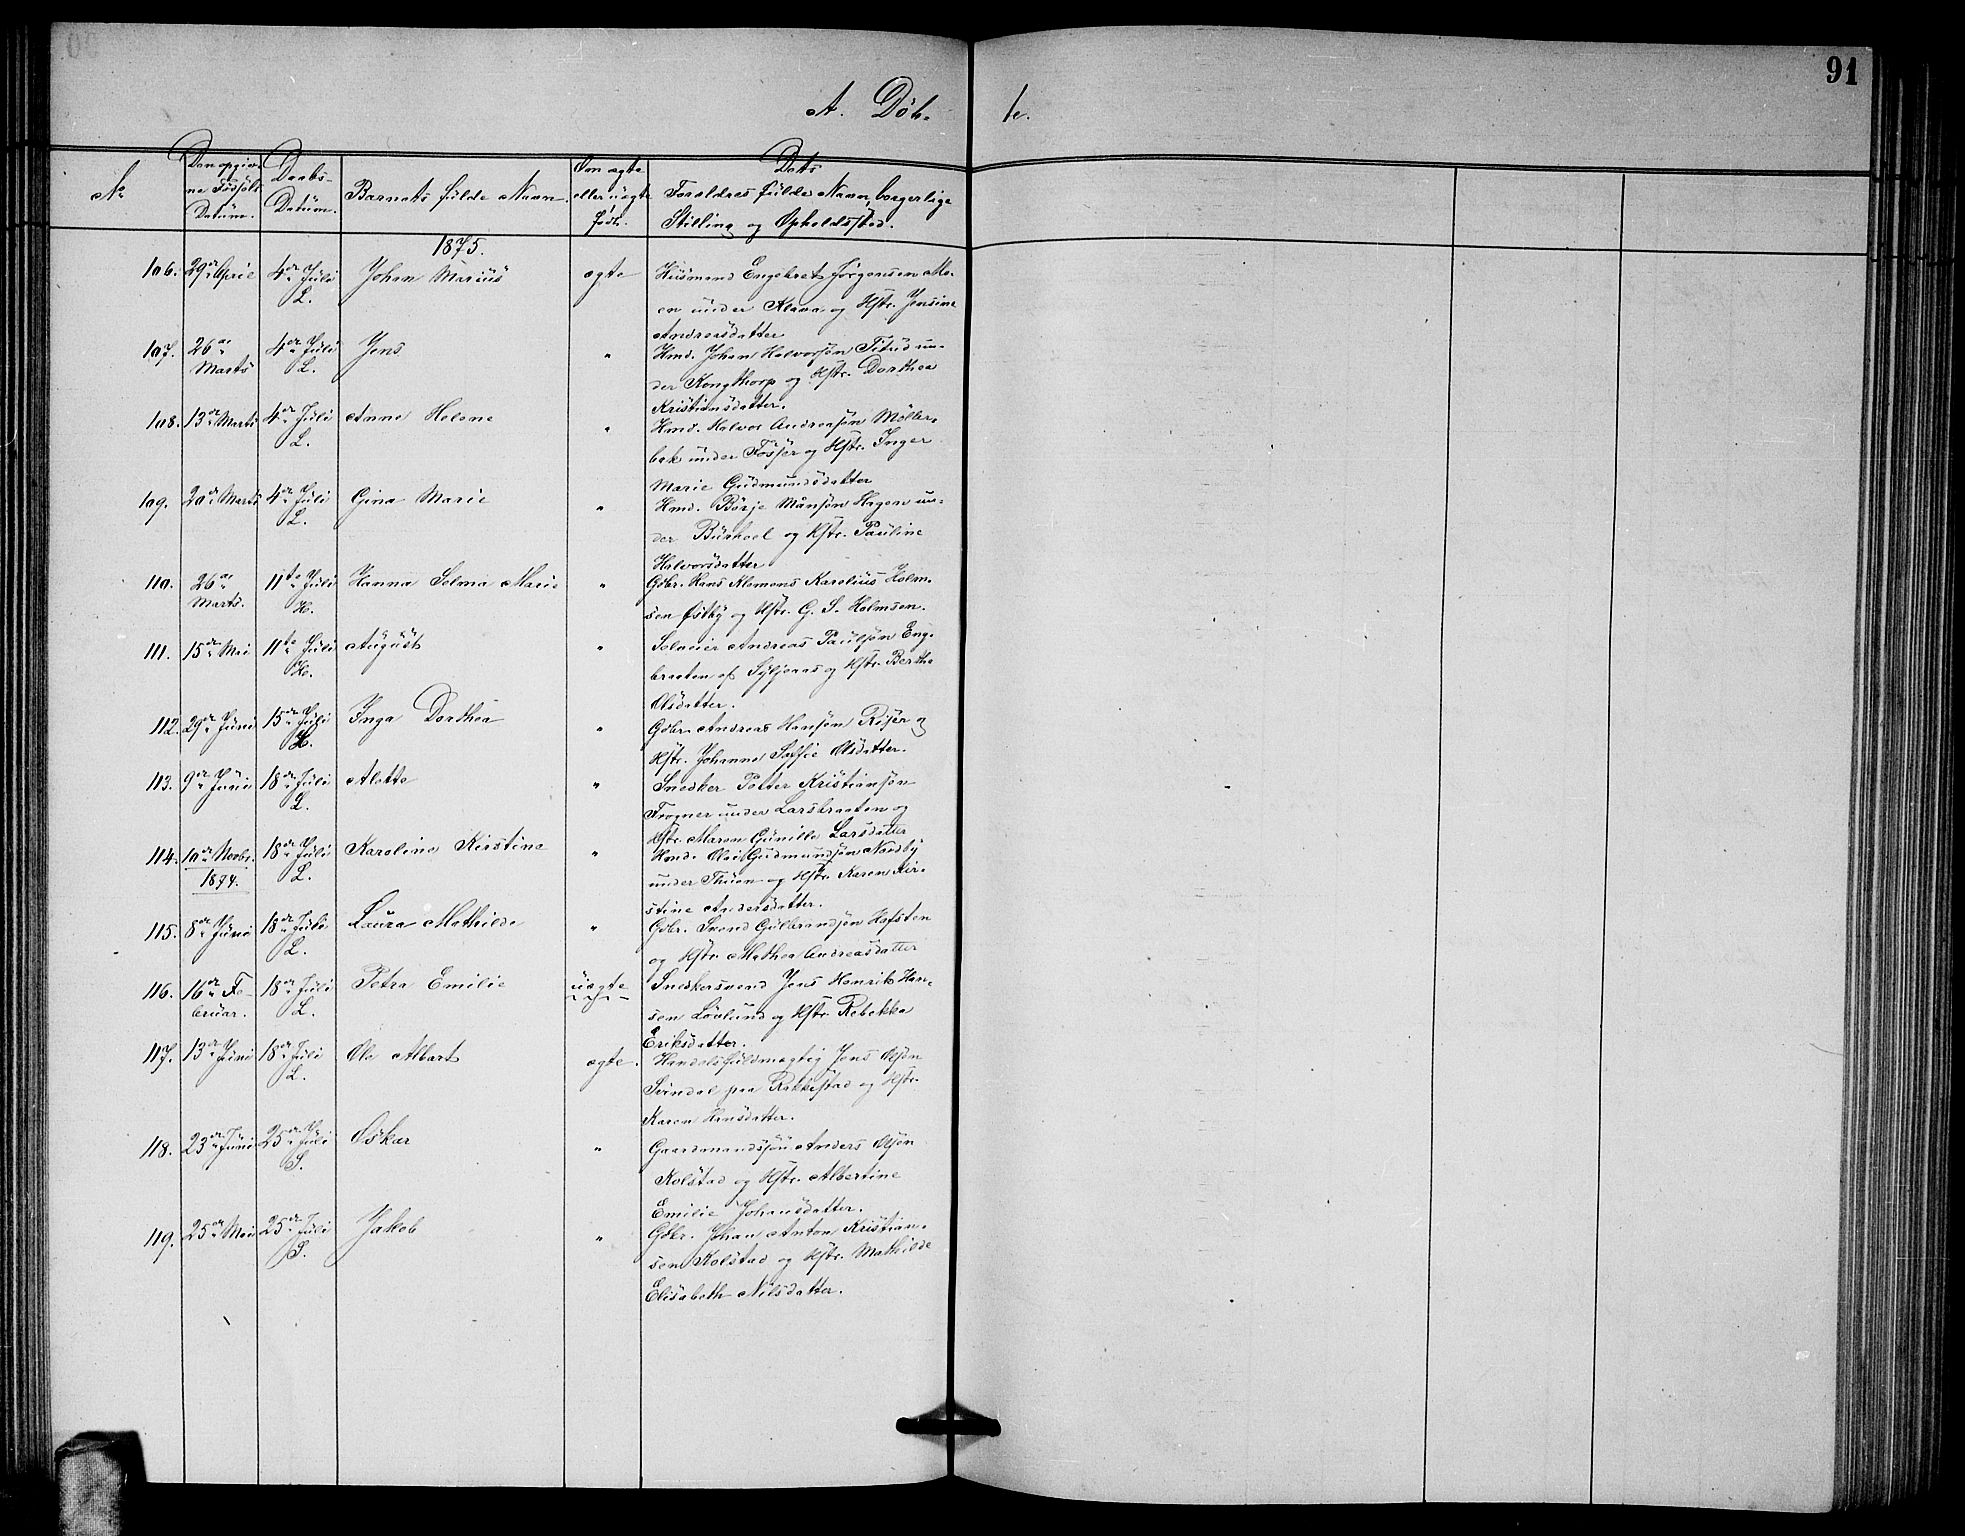 91
A. Døb- te.
No
Den opgiv-
ne Fødsels
Datüm.
Daabs-
Datüm.
Barnets fülde Navn.
Om ægte
eller üægte
født.
Dets
Forældres fülde Navn, borgerlige
Stilling og Opholdssted.
1875.
106. 29de April 4de Jüli Johan Mariüs ægte Hüsmand Engebret Jørgensen Mo-
L. en under Klava og Hstr. Jensine
Andreasdatter
107. 26de 4de Jüli Jens " Hmd. Johan Halvorsøn Titüd un-
Marts L. der Kongthorp og Hstr. Dorthea
Kristiansdatter.
108. 13de Marts 4de Jüli Anne Helene " Hmd. Halvor Andreasøn Møller-
L. bak under Fosser og Hstr. Inger
Marie Gudmundsdatter
109. 20de Marts 4de Jüli Gina Marie " Hmd. Børje Månsøn Hagen un-
L. der Bürhoel og Hstr. Pauline
Halvorsdatter
110. 26de 11te Jüli Hanna Selma Marie " Gdbr. Hans Klemens Karelius Holm-
Marts. H. sen Østby og Hstr. G. S. Holmsen.
111. 15de Mai 11te Jüli August " Selveier Andreas Paulsøn Eng-
H. braaten af Syljeaas og Hstr. Berthe
Olsdatter.
112. 29de Jüni 15de Jüli Inga Dorthea " Gdbr. Andreas Hansøn Risør og
H. Hstr. Johanne Saffie Olsdatter.
113. 9de Jüni 18de Jüli Alette " Snedker Petter Kristiansøn
L. Frogner under Larsbraaten og
Hstr. Maren Günille Larsdatter
114. 10de Novbr. 18de Jüli Karoline Kirstine " Hmd. Olai Gudmundsøn Nordby
1874. L. under Thuen og Hstr. Karen Kir-
stine Andersdatter.
115. 8de Jüni 18de Jüli Laura Mathilde " Gdbr. Svend Gulbrandsøn Hafsten
L. og Hstr. Mathea Andreasdatter
116. 16de Fe- 18de Jüli Petra Emilie üægte Snedkersvend Jens Henrik Han-
bruar. L. sen Løvlund og Hstr. Rebekka
Eriksdatter.
117. 13de Jüni 18de Jüli Ole Albert ægte. Handelsfuldmægtig Jens Olsøn
L. Svindal paa Rakkestad og Hstr.
Karen Hansdatter.
118. 23de Jüni 25de Jüli Oskar " Gaardmandssøn Anders Olsøn
S. Kolstad og Hstr. Albertine
Emilie Johansdatter.
119. 25de Mai 25de Jüli Jakob " Gdbr. Johan Anton Kristian-
S. sen Kolstad og Hstr. Mathilde
Elisabeth Nilsdatter.